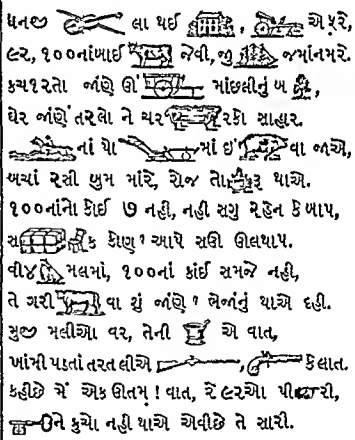 ધનજી લા થઈ , એ પુરે,
૯૨, ૧૦૦નાંખાઈ જેવી, જી જમાંનમરે.
કચ૧૨તો જાંણે ઊં માંછલીનું બ ,
ઘેર જાંણેં તરલો ને ચર રકો સાહાર.
નાં પો માં ઇ વા જાએ,
બચાં ૨સી બુમ માંરે, રોજ તો રૂ થાએ.
૧૦૦નાંનો કોઈ ૭ નહી, નહી સગુ રહેન કે બાપ,
સ ક કોણ? આપે સઊ ઊલથાપ.
વી૪ મલમાં, ૧૦૦નાં કાંઈ સમજે નહી,
તે ગરી વા શું જાંણે? ભેજાંનું થાએ દહી.
મુજી મલીઆ વર, તેની એ વાત,
ખાંમી પડતાં તરત લીએ , કે લાત.
કહીછે મેં એક ઊતમ! વાત, રે ૯૨આ પી રી,
ને કુચો નહી થાએ એવીછે તે સારી.